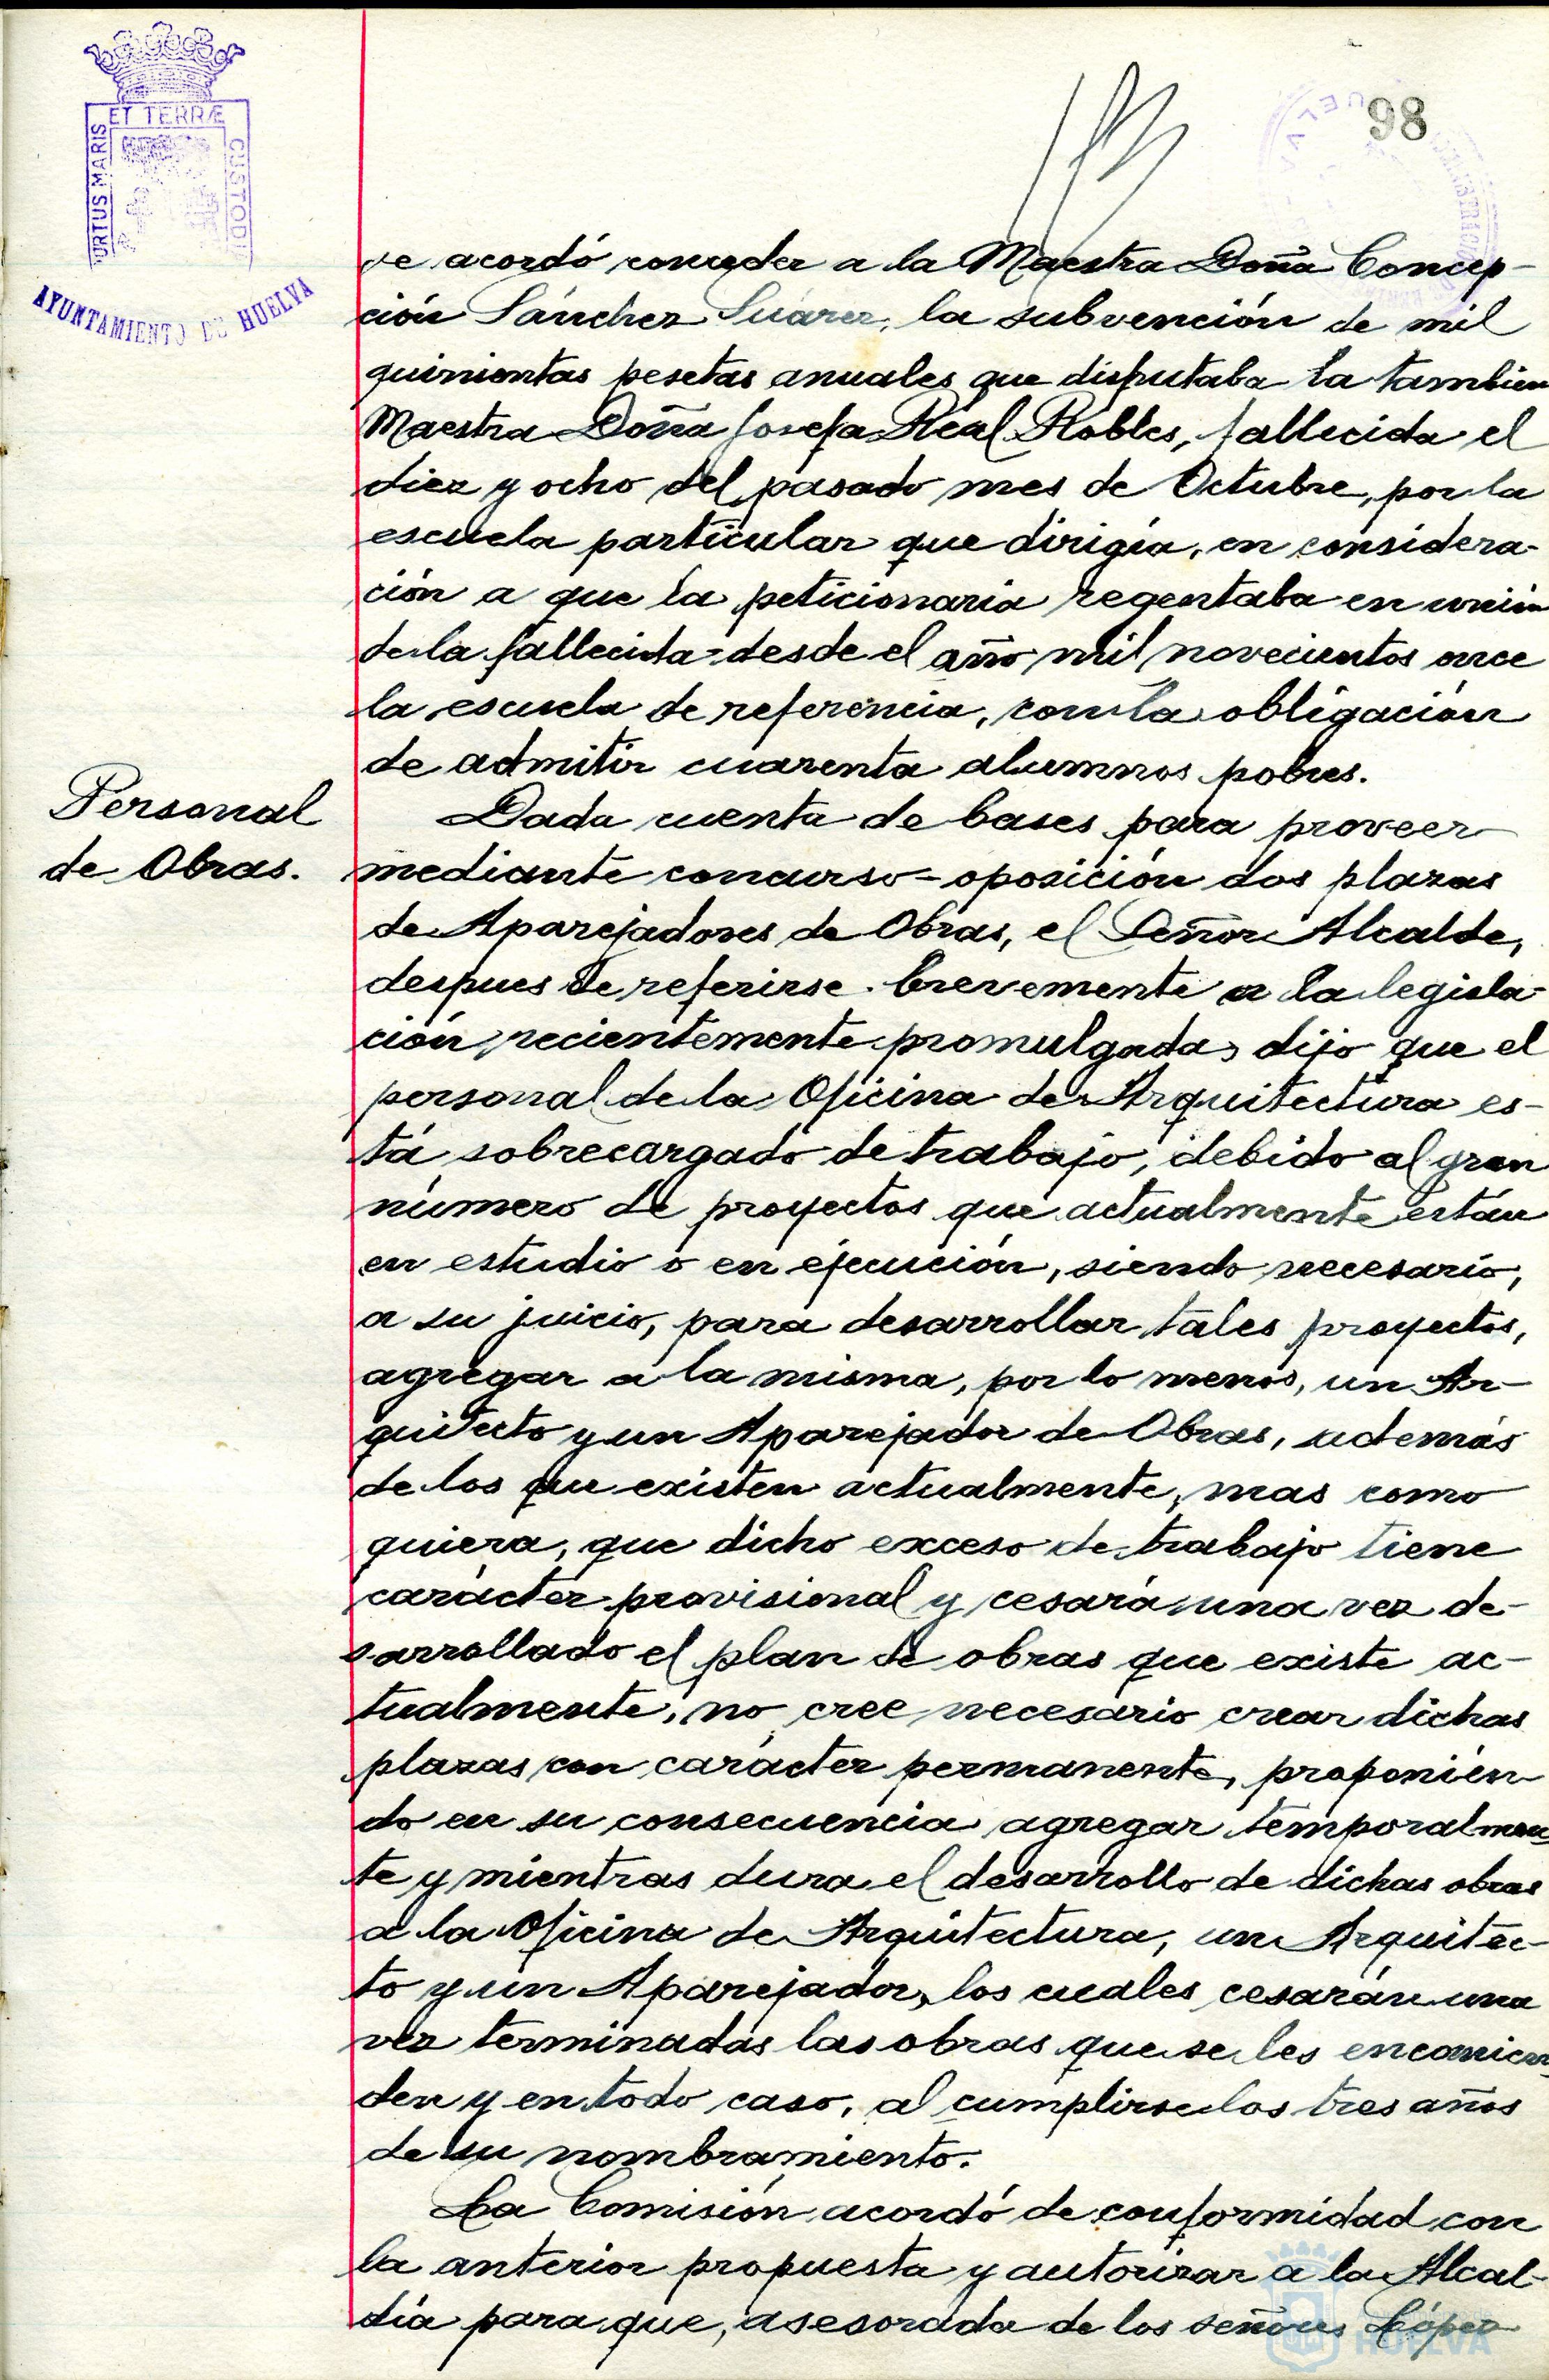 98
ET TERRÆ
PORTUS MARIS
CUSTODIA
AYUNTAMIENTO DE HUELVA
se acordó conceder a la Maestra Doña Concep-
ción Sánchez Suárez, la subvención de mil
quinientas pesetas anuales que disfrutaba la tambien
Maestra Doña Josefa Real Robles, fallecida el
diez y ocho del pasado mes de Octubre, por la
escuela particular que dirigía, en considera-
ción a que la peticionaria regentaba en unión
de la fallecida desde el año mil novecientos once
la escuela de referencia, con la obligación
de admitir cuarenta alumnos pobres.
Personal
de Obras.
Dada cuenta de bases para proveer
mediante concurso-oposición dos plazas
de Aparejadores de Obras, el Señor Alcalde,
despues de referirse brevemente a la legisla-
ción recientemente promulgada, dijo que el
personal de la Oficina de Arquitectura es-
tá sobrecargado de trabajo, debido al gran
número de proyectos que actualmente están
en estudio o en ejecución, siendo necesario,
a su juicio, para desarrollar tales proyectos,
agregar a la misma, por lo menos, un Ar-
quitecto y un Aparejador de Obras, además
de los que existen actualmente, mas como
quiera, que dicho exceso de trabajo tiene
carácter provisional y cesará una vez de-
sarrollado el plan de obras que existe ac-
tualmente, no cree necesario crear dichas
plazas con carácter permanente, proponien-
do en su consecuencia agregar temporalmen
te y mientras dura el desarrollo de dichas obras
a la Oficina de Arquitectura, un Arquitec-
to y un Aparejador, los cuales cesarán una
vez terminadas las obras que se les encomien
den y en todo caso, al cumplirse los tres años
de su nombramiento.
La Comisión acordó de conformidad con
la anterior propuesta y autorizar a la Alcal-
día para que, asesorada de los señores López
HUELVA